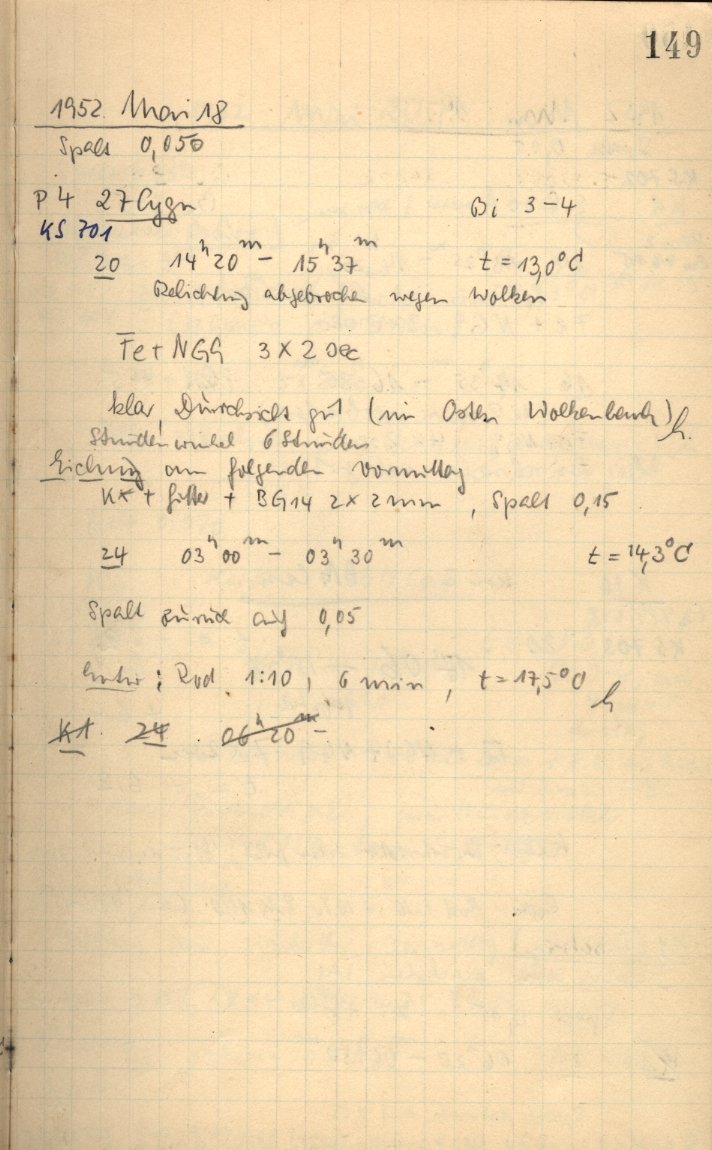 149
1952. Mai 18
Spalt 0,050
P 4 27 Cygn Bi 3-4
KS 701
20 14ʰ20ᵐ - 15ʰ37ᵐ t = 13,0°C
Belichtung abgebrochen wegen Wolken
Fe + NGG 3 x 2 sec
klar, Durchsicht gut (im Osten Wolkenbank) h.
Stundenwinkel 6 Stunden
Eichung am folgenden Vormittag
+ Gitter + BG14 2 x 2 mm, Spalt 0,15
24 03ʰ00ᵐ - 03ʰ30ᵐ t = 14,3°C
Spalt zurück auf 0,05
: Rod. 1:10, 6 min, t = 17,5°C h
24 06ʰ20ᵐ -